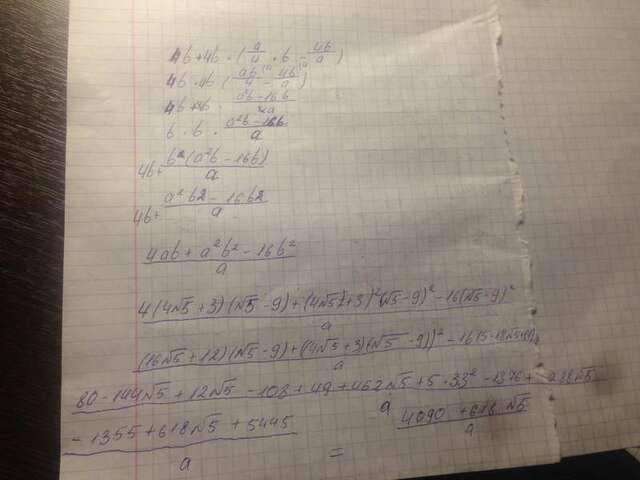 4b+4b · (a/4 · b - 4b/a)
4b · 4b (ab/4 - 4b/a)
4b+4b · a²b-16b/4a
b · b · a²b-16b/a
4b+ b²(a²b-16b)/a
4b+ a²b2-16b2/a
4ab+a²b²-16b²/a
4(4√5+3)(√5-9)+(4√5+3)²(√5-9)²-16(√5-9)²/a
(16√5+12)(√5-9)+((4√5+3)(√5-9))²-16(5-18√5+81)/a
80-144√5+12√5-108+49+462√5+5·33²-1376+288√5/a
-1355+618√5+5445/a = 4090+618√5/a